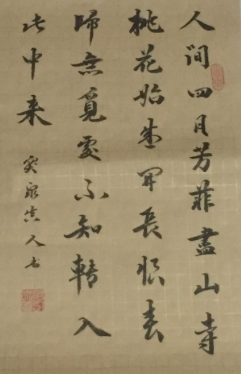 人間四月芳菲盡山寺
桃花始盛開長恨春
歸無覓處不知轉入
此中来